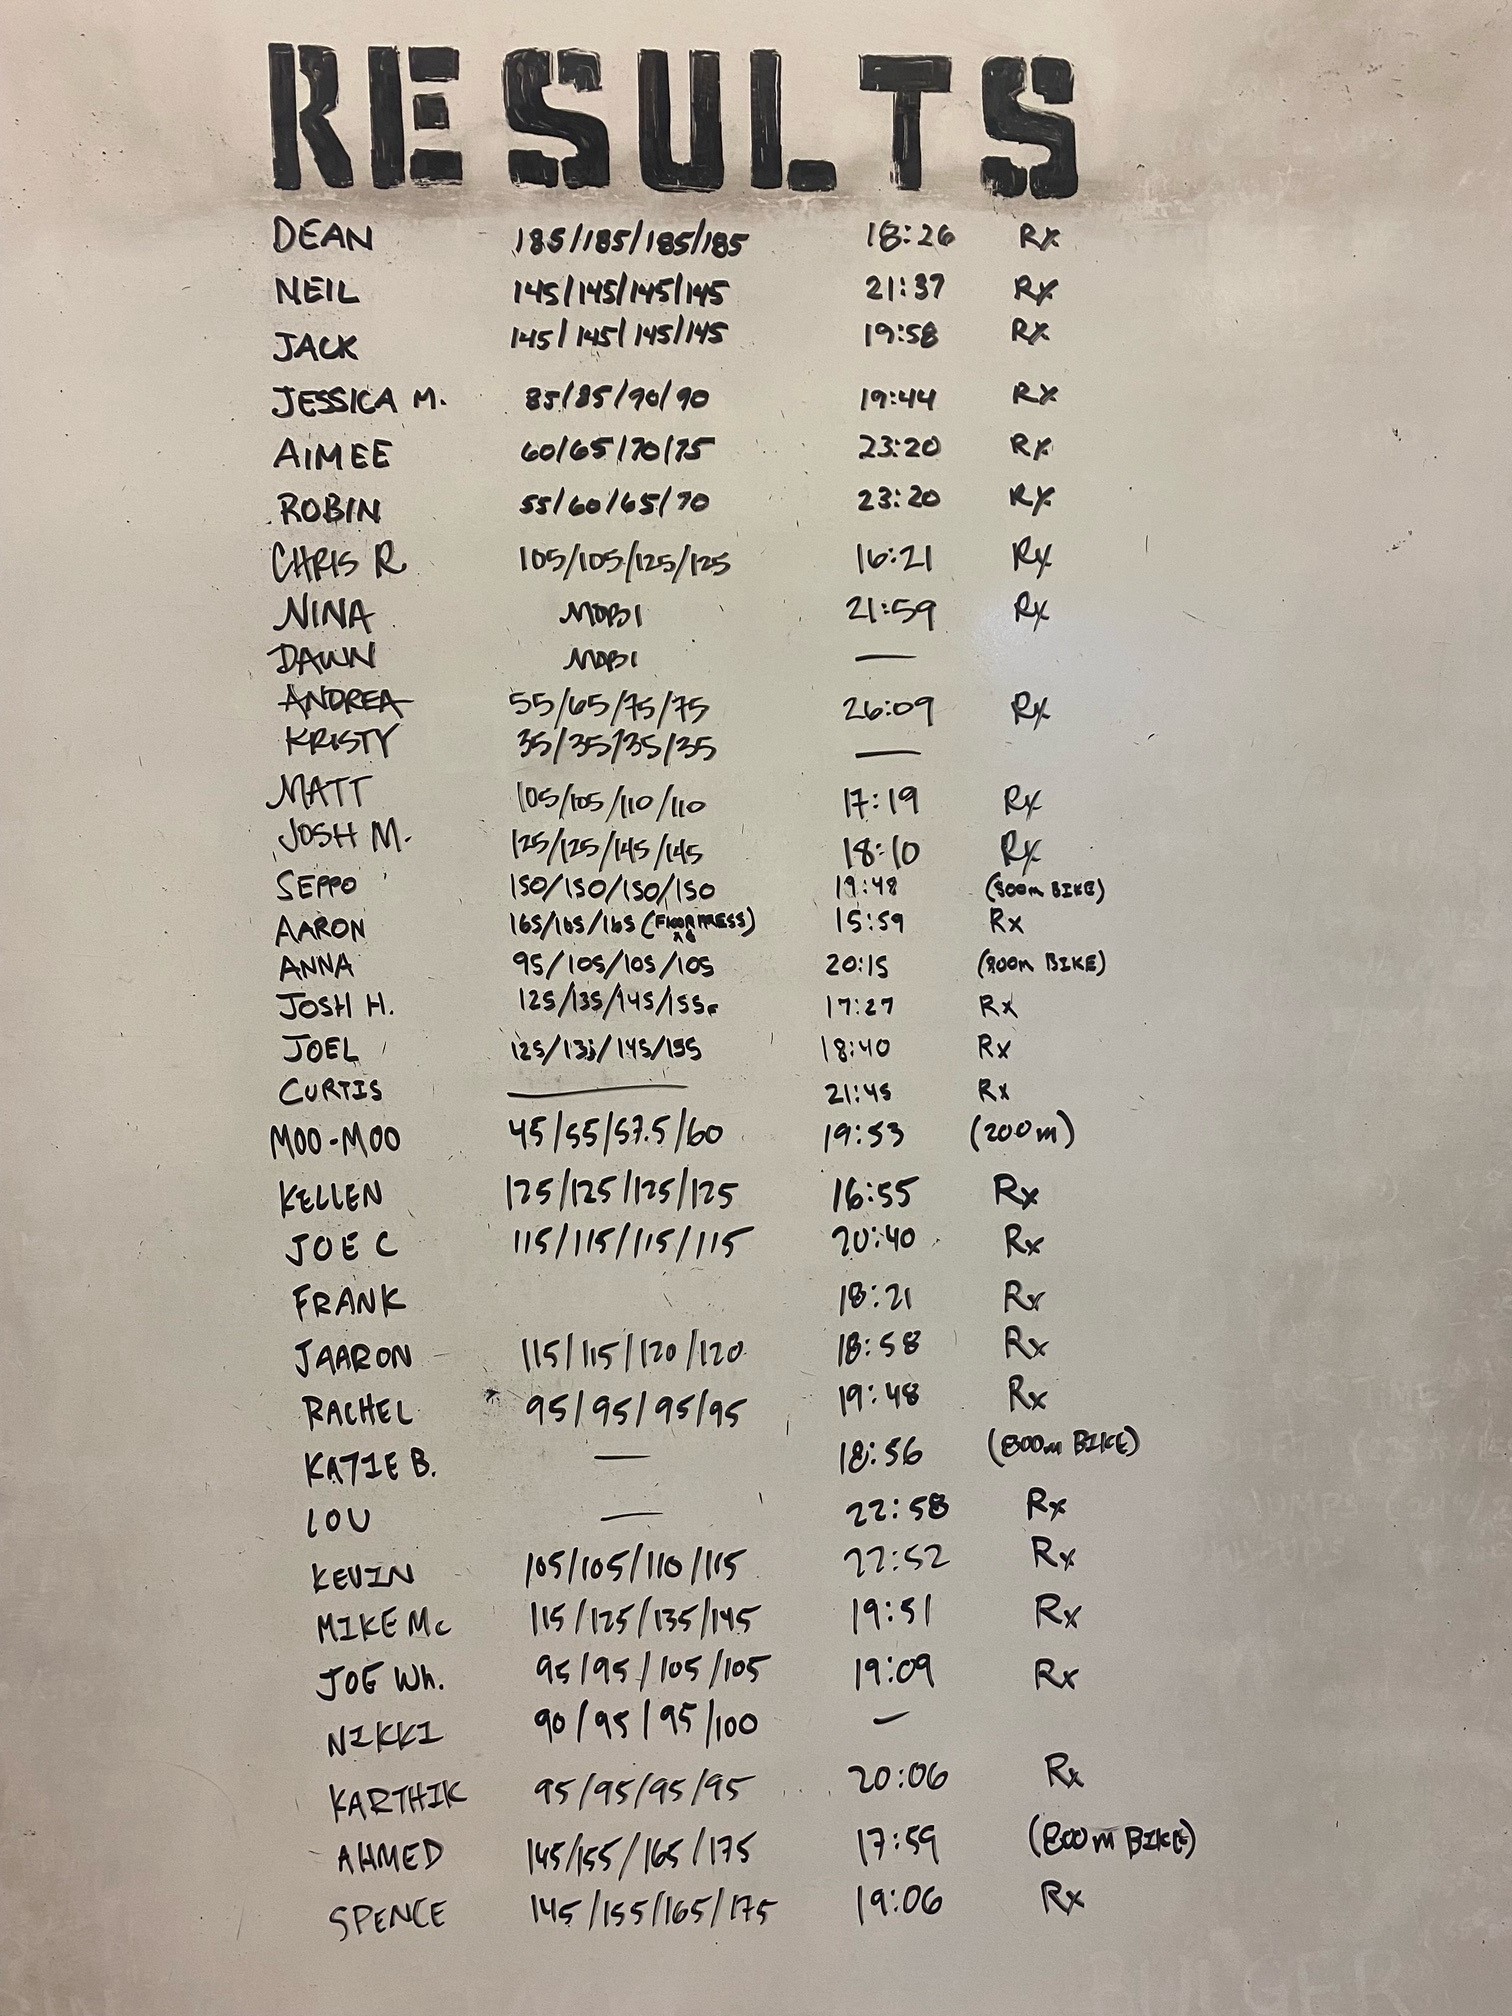 RESULTS
DEAN 185/185/185/185 18:26 Rx
NEIL 145/145/145/145 21:37 Rx
JACK 145/145/145/145 19:58 Rx
JESSICA M. 85/85/90/90 19:44 Rx
AIMEE 60/65/70/75 23:20 Rx
ROBIN 55/60/65/70 23:20 Rx
CHRIS R 105/105/125/125 16:21 Rx
NINA MOBI 21:59 Rx
DAWN MOBI —
ANDREA 55/65/75/75 26:09 Rx
KRISTY 35/35/35/35 —
MATT 105/105/110/110 17:19 Rx
JOSH M. 125/125/145/145 18:10 Rx
SEPPO 150/150/150/150 19:48 (800m BIKE)
AARON 165/165/165 (FLOOR PRESS) 15:59 Rx
ANNA 95/105/105/105 20:15 (800m BIKE)
JOSH H. 125/135/145/155F 17:27 Rx
JOEL 125/135/145/155 18:40 Rx
CURTIS — 21:45 Rx
MOO-MOO 45/55/57.5/60 19:53 (200m)
KELLEN 125/125/125/125 16:55 Rx
JOE C 115/115/115/115 20:40 Rx
FRANK 18:21 Rx
JAARON 115/115/120/120 18:58 Rx
RACHEL 95/95/95/95 19:48 Rx
KATIE B. — 18:56 (800m BIKE)
LOU — 22:58 Rx
KEVIN 105/105/110/115 22:52 Rx
MIKE Mc 115/125/135/145 19:51 Rx
JOE Wh. 95/95/105/105 19:09 Rx
NIKKI 90/95/95/100 —
KARTHIK 95/95/95/95 20:06 Rx
AHMED 145/155/165/175 17:59 (800m BIKE)
SPENCE 145/155/165/175 19:06 Rx